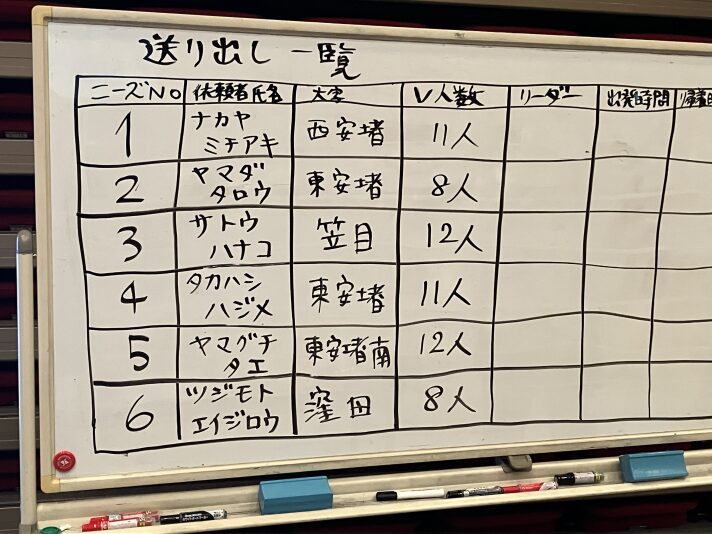 送り出し 一覧
ニーズNo 依頼者氏名 大字 V人数 リーダー 出発時間
1 ナカヤ ミチアキ 西安堵 11人
2 ヤマダ タロウ 東安堵 8人
3 サトウ ハナコ 笠目 12人
4 タカハシ ハジメ 東安堵 11人
5 ヤマグチ タエ 東安堵南 12人
6 ツジモト エイジロウ 窪田 8人